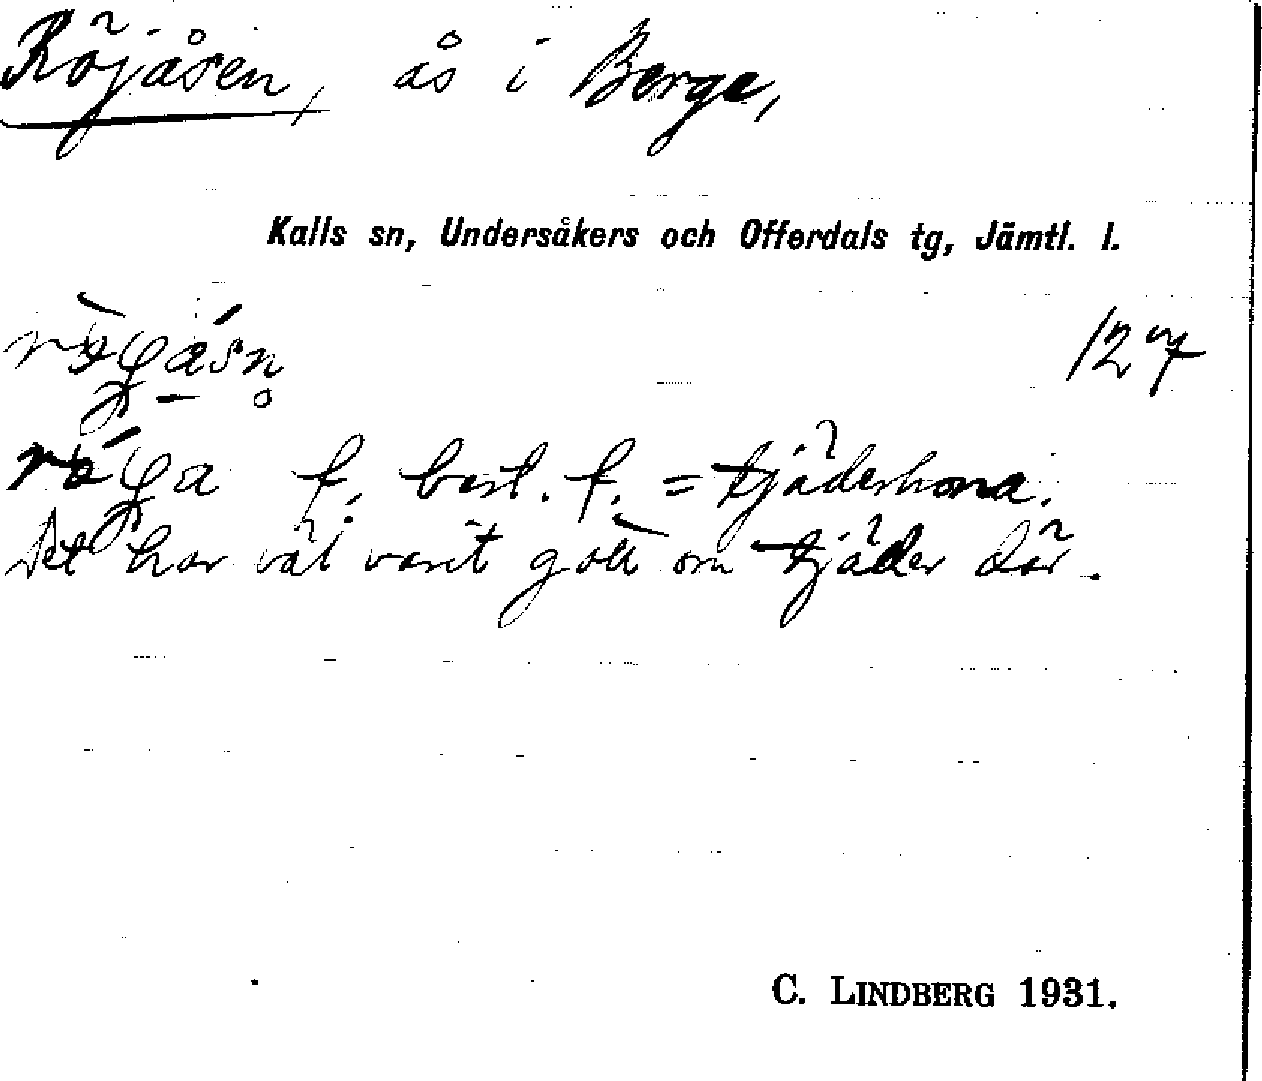 Röjåsen, ås i Berge,
Kalls sn, Undersåkers och Offerdals tg, Jämtl. l.
127
f. best. f. = tjäderhona.
Det har väl varit gott om tjäder där.
C. LINDBERG 1931.